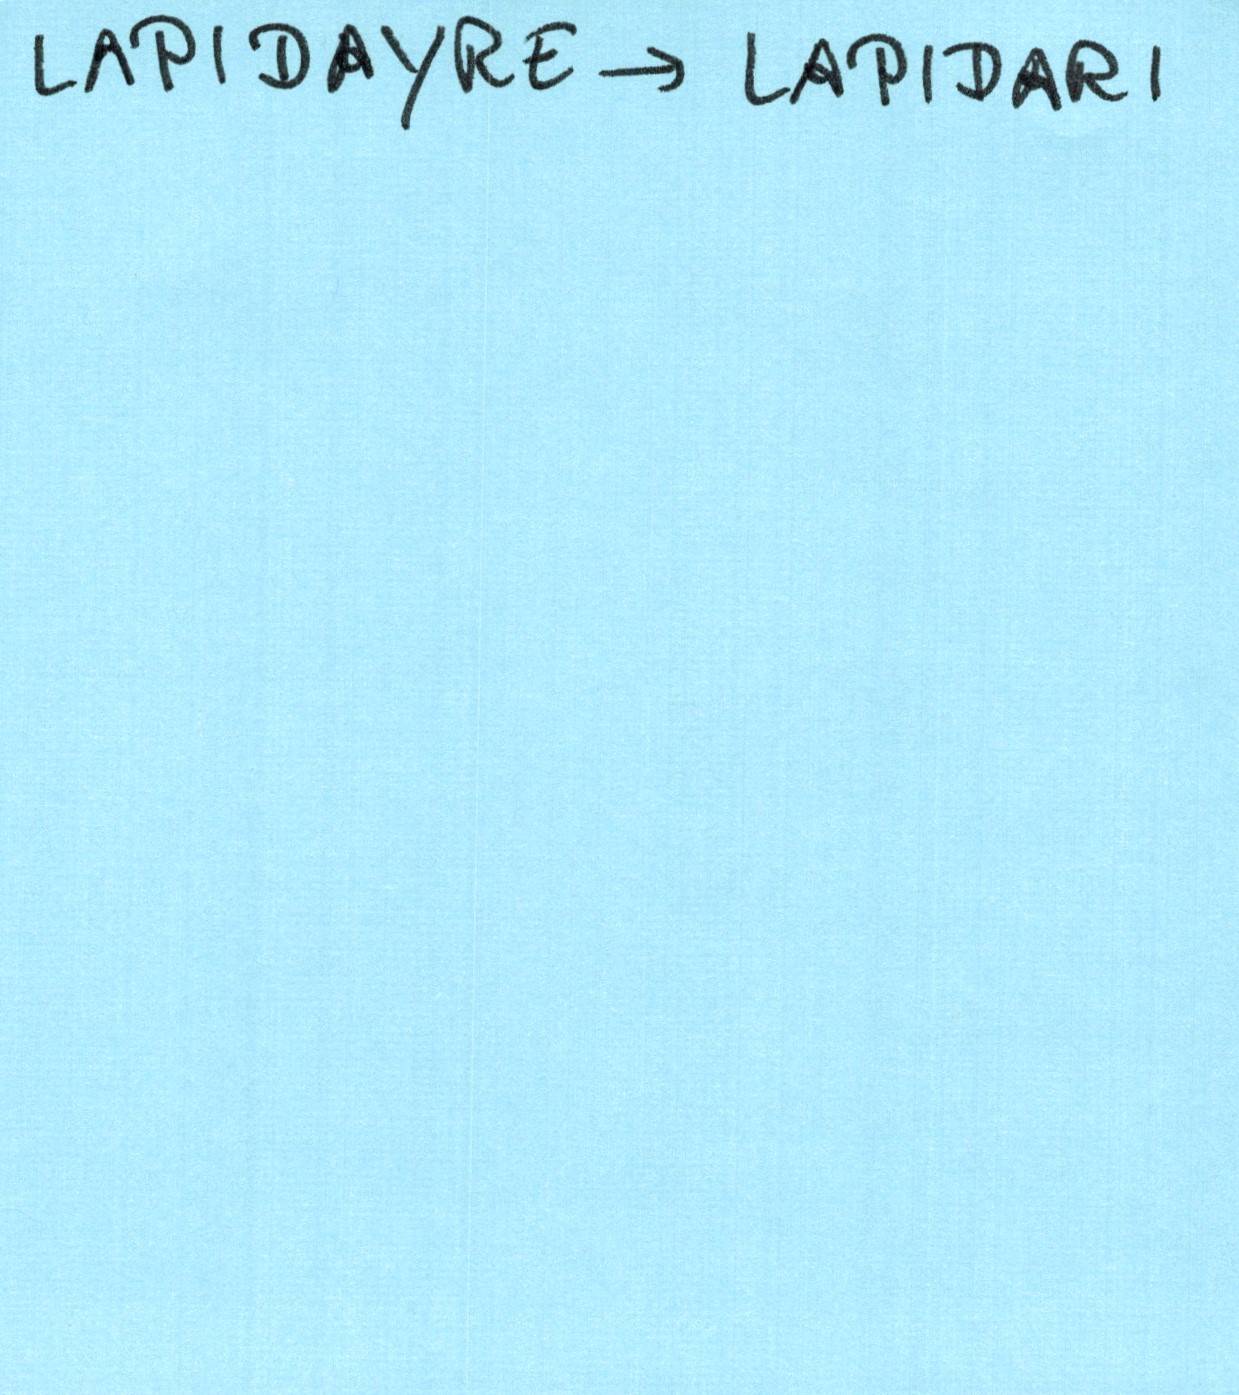 LAPIDAYRE → LAPIDARI